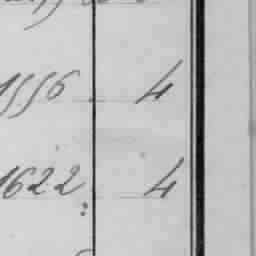 1556 4
1622 4